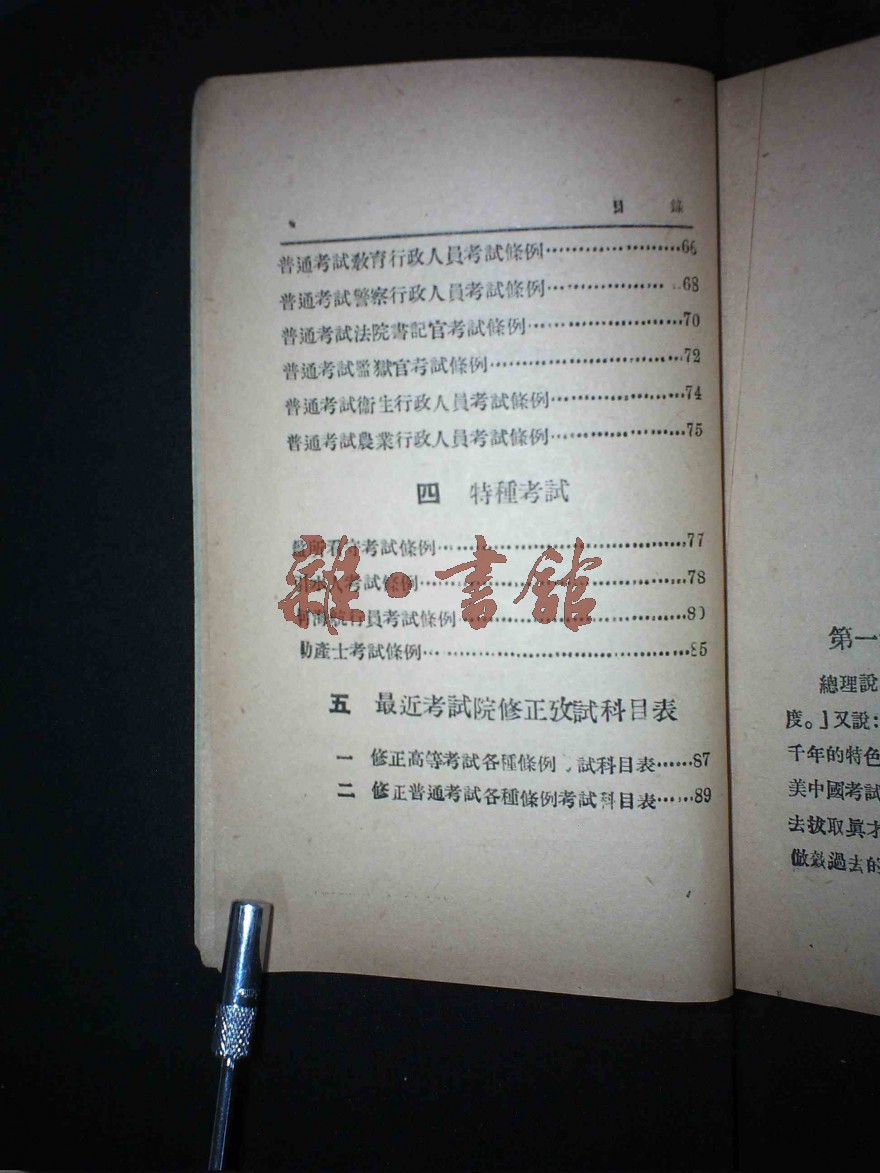 目 錄
普通考試敎育行政人員考試條例…………………66
普通考試警察行政人員考試條例………………68
普通考試法院書記官考試條例……………………70
普通考試監獄官考試條例…………………………72
普通考試衞生行政人員考試條例…………………74
普通考試農業行政人員考試條例…………………75
四 特種考試
監所看守考試條例…………………………………77
引水人考試條例……………………………………78
河海航行員考試條例………………………………80
助產士考試條例……………………………………85
五 最近考試院修正攷試科目表
一 修正高等考試各種條例 試科目表……87
二 修正普通考試各種條例考試科目表……89
雜·書館
第一
總理說
度。」又說：
千年的特色
美中國考試
法拔取眞才
倣過去的